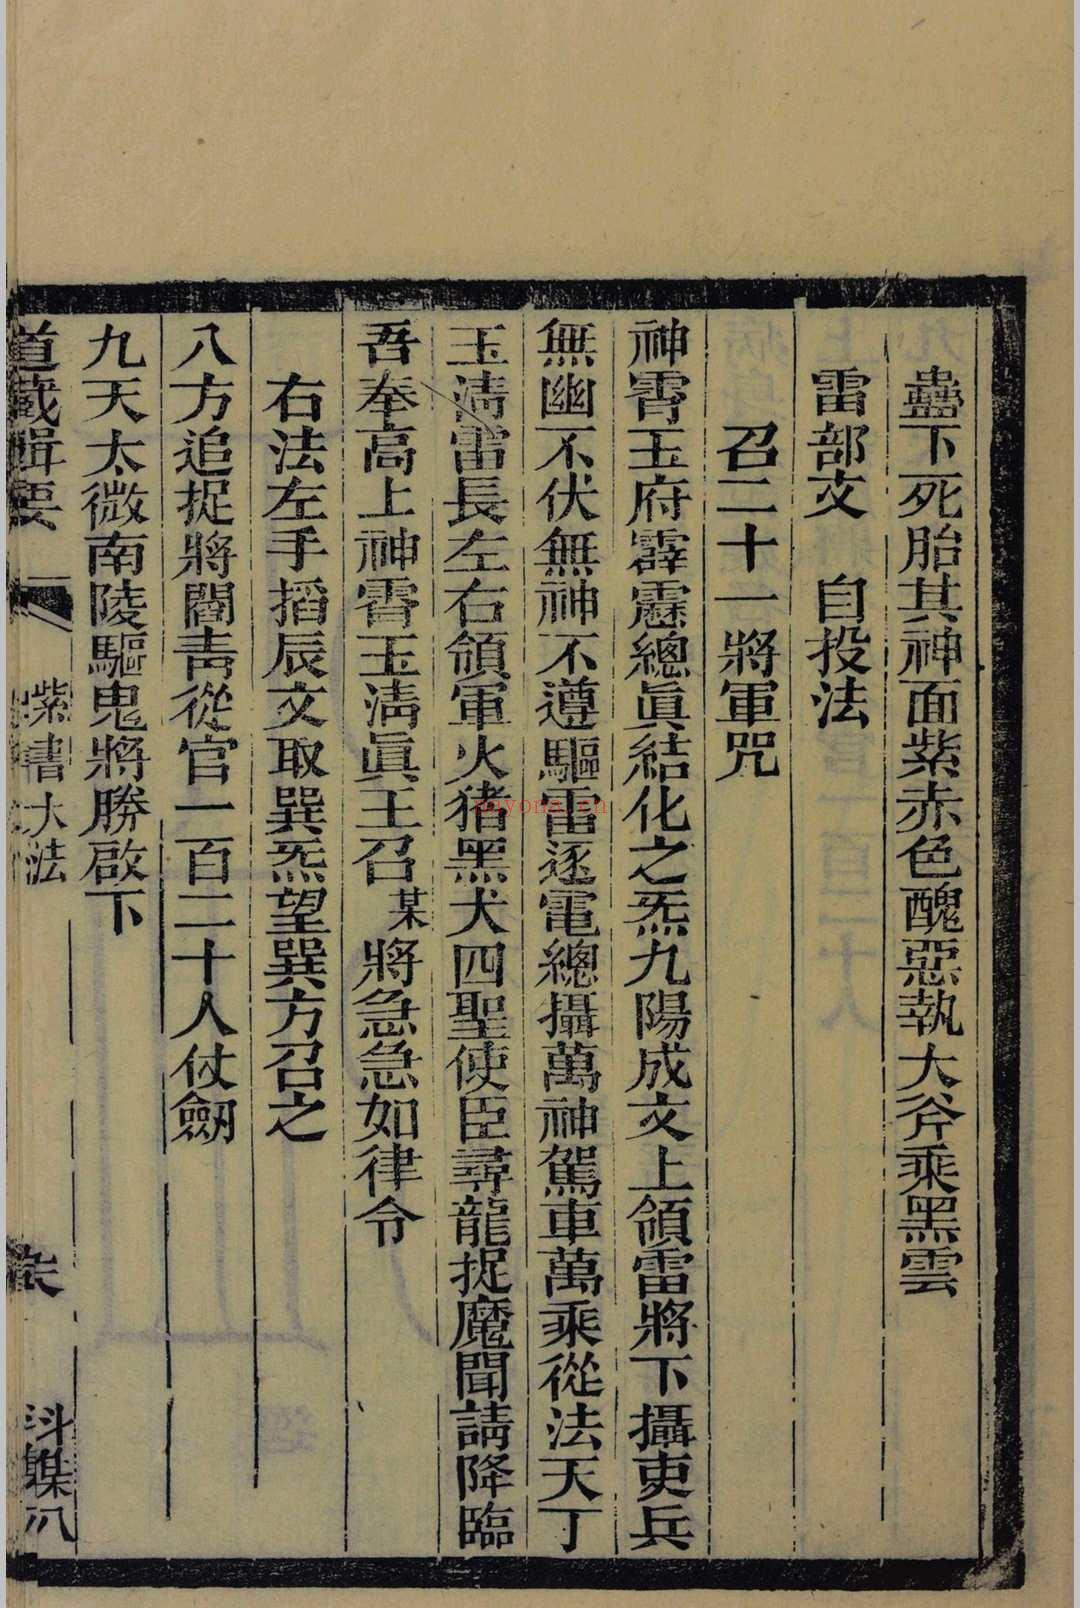 蠱下死胎其神面紫赤色醜惡執大斧乘黑雲
雷部文　自投法
召二十一將軍咒
神霄玉府霹靂總眞結化之炁九陽成文上領雷將下攝吏兵
無幽不伏無神不遵驅雷逐電總攝萬神駕車萬乘從法天丁
玉淸雷長左右領軍火猪黑犬四聖使臣尋龍捉魔聞請降臨
吾奉高上神霄玉淸眞王召某將急急如律令
右法左手搯辰文取巽炁望巽方召之
八方追捉將閻靑從官一百二十人仗劒
九天太微南陵驅鬼將勝啟下
道藏輯要
紫書大法